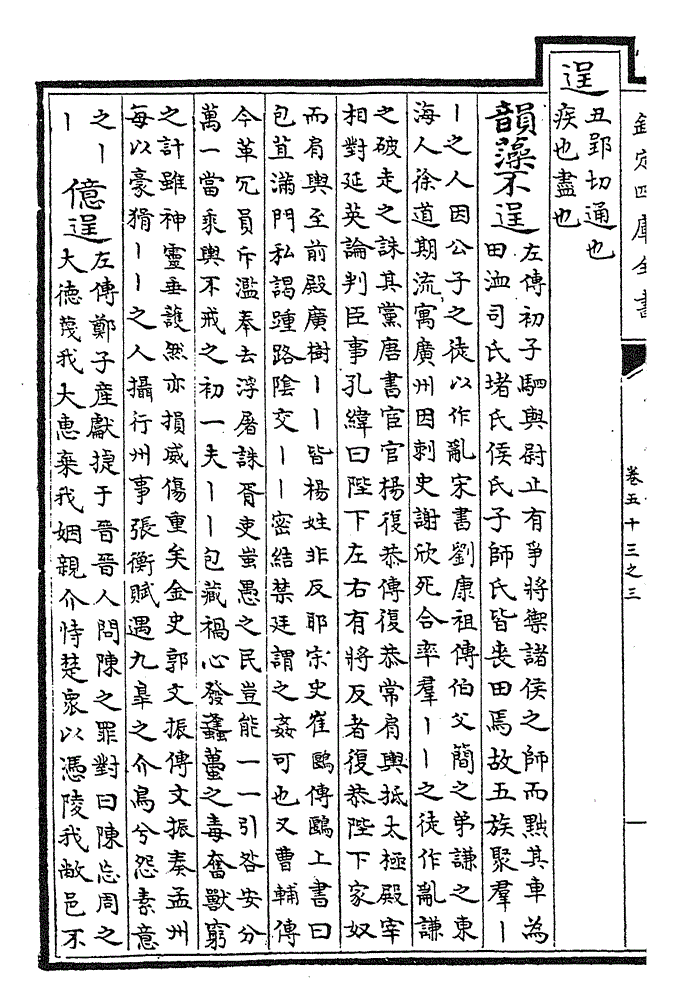 欽定四庫全書
卷五十三之三
一
逞
丑郢切通也
疾也盡也
韻藻不逞
左傳初子駟與尉止有爭將禦諸侯之師而黜其車為
田洫司氏堵氏侯氏子師氏皆喪田焉故五族聚羣丨
丨之人因公子之徒以作亂宋書劉康祖傳伯父簡之弟謙之東
海人徐道期流寓廣州因刺史謝欣死合率羣丨丨之徒作亂謙
之破走之誅其黨唐書宦官楊復恭傳復恭常肩輿抵太極殿宰
相對延英論判臣事孔緯曰陛下左右有將反者復恭陛下家奴
而肩輿至前殿廣樹丨丨皆楊姓非反耶宋史崔鷗傳鷗上書曰
包苴滿門私謁踵路陰交丨丨密結禁廷謂之姦可也又曹輔傳
今革冗員斥濫奉去浮屠誅胥吏蚩愚之民豈能一一引咎安分
萬一當乘輿不戒之初一夫丨丨包藏禍心發蠭蠆之毒奮獸窮
之計雖神靈垂護然亦損威傷重矣金史郭文振傳文振奏孟州
每以豪猾丨丨之人攝行州事張衡賦遇九臯之介鳥兮怨素意
之丨
丨
億逞
左傳鄭子產獻捷于晉晉人問陳之罪對曰陳忘周之
大德蔑我大惠棄我姻親介恃楚衆以憑陵我敝邑不